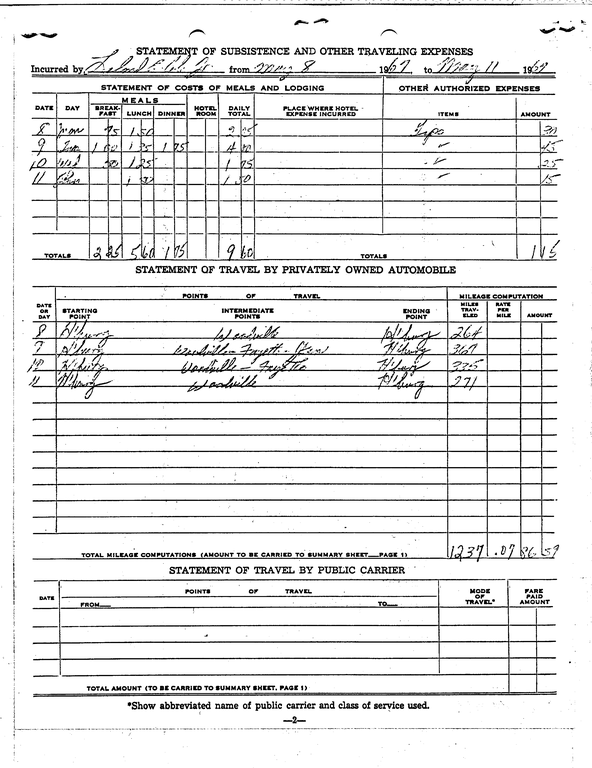 STATEMENT OF SUBSISTENCE AND OTHER TRAVELING EXPENSES
Incurred by Leland E. Cole Jr. from May 8 1967 to May 11 1967
STATEMENT OF COSTS OF MEALS AND LODGING OTHER AUTHORIZED EXPENSES
MEALS
DATE DAY BREAK-FAST LUNCH DINNER HOTEL ROOM DAILY TOTAL PLACE WHERE HOTEL EXPENSE INCURRED ITEMS AMOUNT
8 Mon 75 1 50 2 25 30
9 1 75 4 45
10 Wed 1 25 1 75 25
11 1 50 15
TOTALS 2 25 5 60 1 75 9 60 TOTALS 1 15
STATEMENT OF TRAVEL BY PRIVATELY OWNED AUTOMOBILE
POINTS OF TRAVEL MILEAGE COMPUTATION
DATE OR DAY STARTING POINT INTERMEDIATE POINTS ENDING POINT MILES TRAV-ELED RATE PER MILE AMOUNT
8 H'burg Woodville H'burg 264
9 H'burg Woodville - Fayette H'burg 367
10 H'burg Woodville - Fayette H'burg 335
11 H'burg Woodville H'burg 271
TOTAL MILEAGE COMPUTATIONS (AMOUNT TO BE CARRIED TO SUMMARY SHEET—PAGE 1) 1237 .07 86 59
STATEMENT OF TRAVEL BY PUBLIC CARRIER
DATE POINTS OF TRAVEL MODE OF TRAVEL* FARE PAID AMOUNT
FROM— TO—
TOTAL AMOUNT (TO BE CARRIED TO SUMMARY SHEET, PAGE 1)
*Show abbreviated name of public carrier and class of service used.
—2—